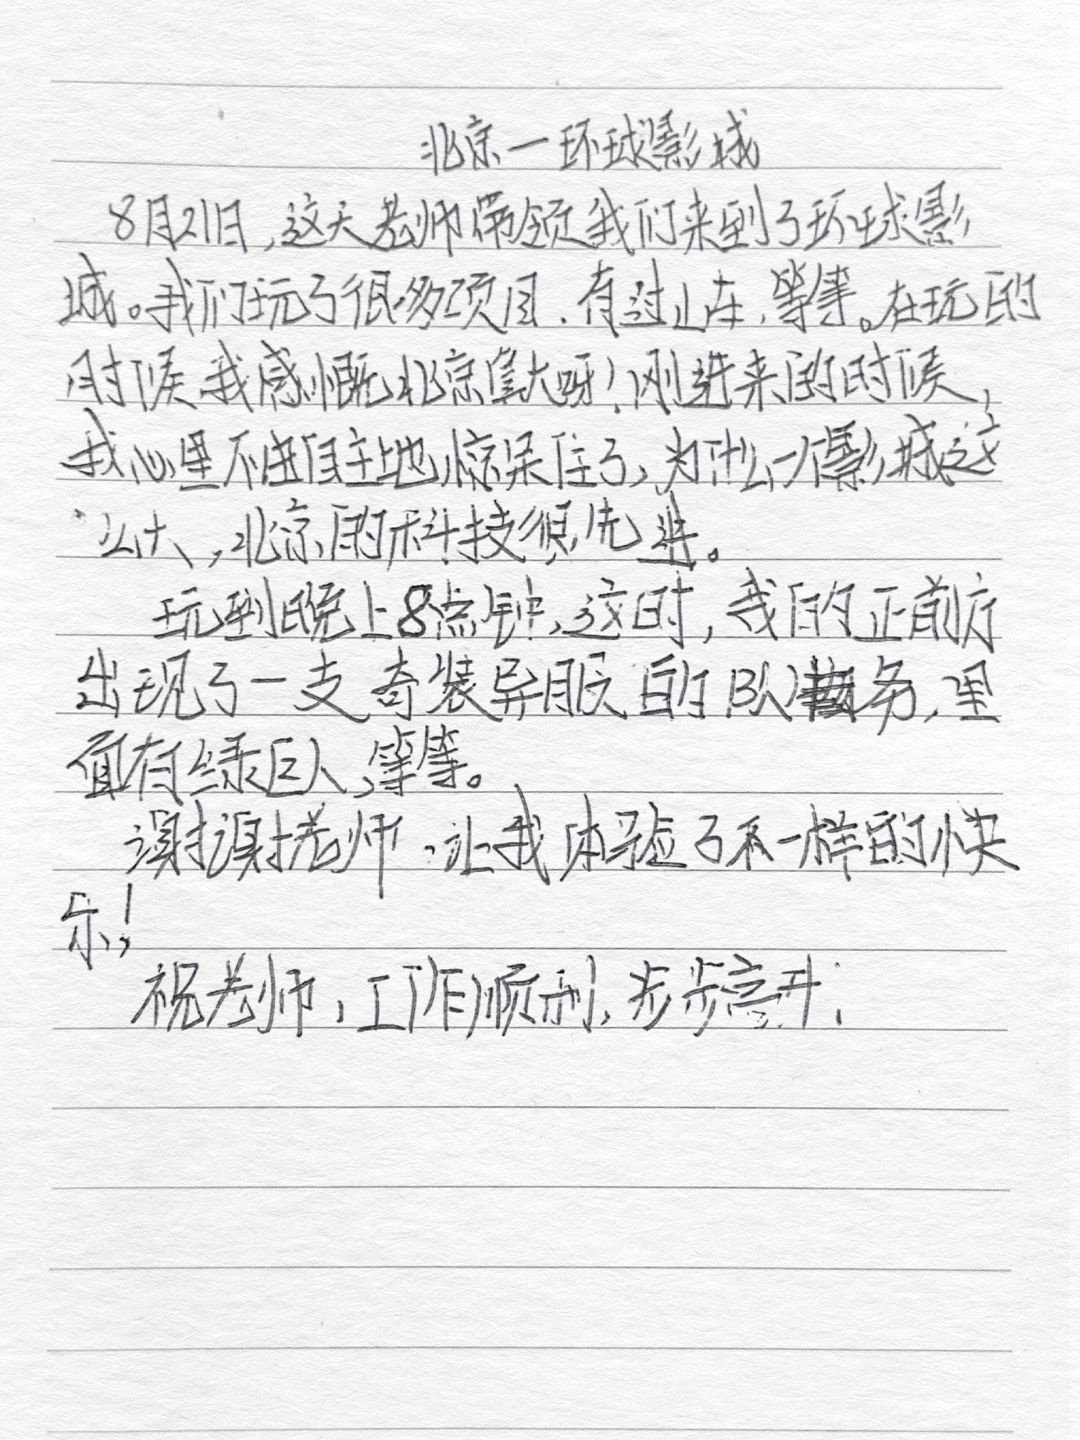 北京一环球影城
8月21日,这天老师带领我们来到了环球影
城。我们玩了很多项目.有过山车,等等。在玩的
时候我感慨北京真大呀!刚进来的时候,
我心里不由自主地惊呆住了,为什么一个影城这
么大,北京的科技很先进。
玩到晚上8点钟,这时,我的正前方
出现了一支奇装异服的队务,里
面有绿巨人,等等。
谢谢老师.让我体验了不一样的快
乐!
祝老师,工作顺利,步步高升;